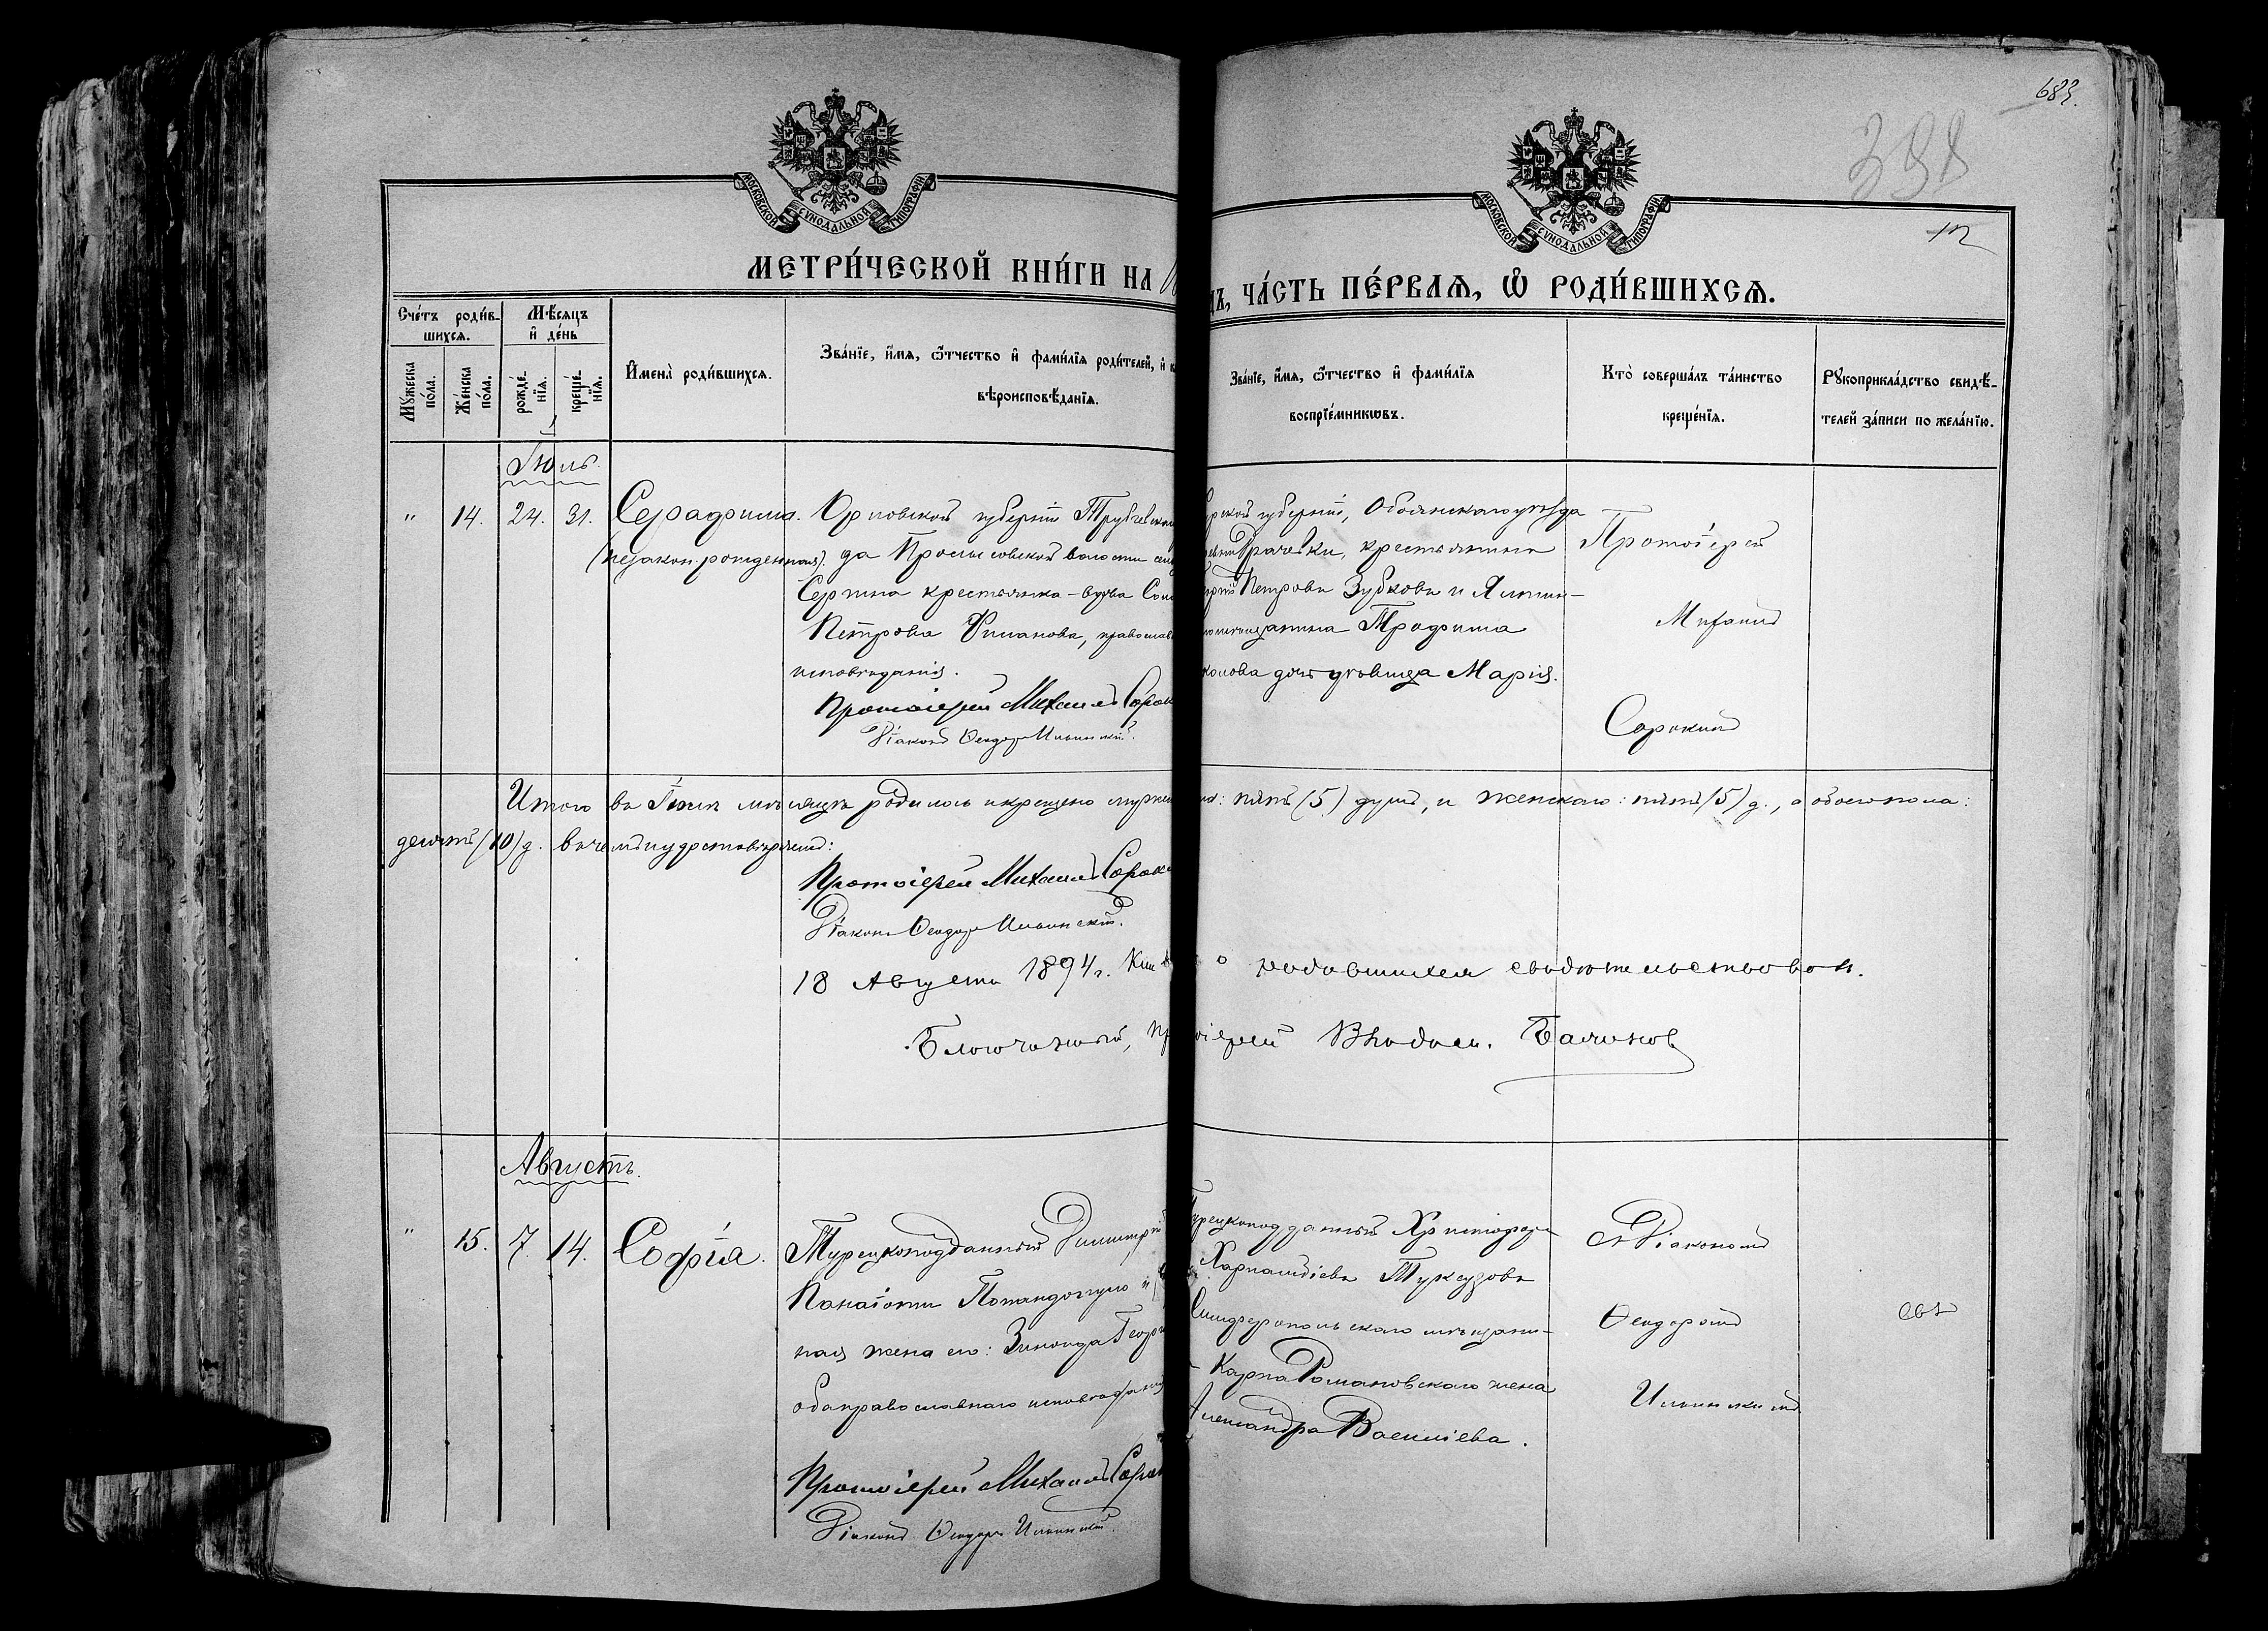 683.
398
12
МОСКОВСКОЙ СѴНОДАЛЬНОЙ ТИПОГРАФІИ
МЕТРИ́ЧЕСКОЙ КНИ́ГИ НА
МОСКОВСКОЙ СѴНОДАЛЬНОЙ ТИПОГРАФІИ
ЧА́СТЬ ПЕ́РВАѦ, Ѽ РОДИ́ВШИХСѦ.
Сче́тъ роди́в-
шихсѧ.
Мꙋ́жеска по́ла.
Же́нска по́ла.
Мѣ́сяцъ
и҆ де́нь
рожде́-
нїѧ.
креще́-
нїѧ.
И҆мена̀ роди́вшихсѧ.
Зва́нїе, и҆́мѧ, ѻ҆́тчество и҆ фами́лїѧ роди́телей, и҆
вѣроисповѣ́данїѧ.
Зва́нїе, и҆́мѧ, ѻ҆́тчество и҆ фами́лїѧ
воспрїе́мникѡвъ.
Кто̀ соверша́лъ та́инство
креще́нїѧ.
Рꙋкоприкла́дство свидѣ́-
телей за́писи по жела́нїю.
Іюль.
" 14. 24. 31. Серафима.
(незакон.рожденная).
Орловской губерніи Трубчевска
да сской волости
крестьянка-вдова
Петрова Филанова, православ
исповѣданія.
Протоіерей Михаилъ Сорок
Діаконъ Ѳеодоръ Ильинскій.
рской губерніи, Обоянскаго уѣзда
крестьянина
Петрова Зубкова и Ялтин-
Трофима
дочь дѣвица Марія.
Протоіерей
Михаилъ
Сорокинъ
Итого въ Іюлѣ мѣсяцѣ родилось и крещено мужес
: пять (5) душъ, и женскаго: пять (5) д., а обоего пола:
десять (10) д. въ чемъ и удостовѣряемъ:
Протоіерей Михаилъ Сорок
Діаконъ Ѳеодоръ Ильинскій.
18 Августа 1894 г. Кни
о родившихся свидѣтельствовалъ.
Благочинный, пр
оіерей Владим. Баляновъ
Августъ.
" 15. 7. 14. Софія.
Турецкоподданный Димитрій
Панаіоти Попандопуло и
ная жена его: Зиновія Георг
оба православнаго исповѣданія
Протоіерей Михаилъ Сорок
Діаконъ Ѳеодоръ Ильинскій.
Турецкоподданный Христофоръ
Харлампіевъ
Симферопольскаго мѣщани-
Карпа Романовскаго жена
Александра Васильева.
Діакономъ
Ѳеодоромъ
Ильинскимъ.